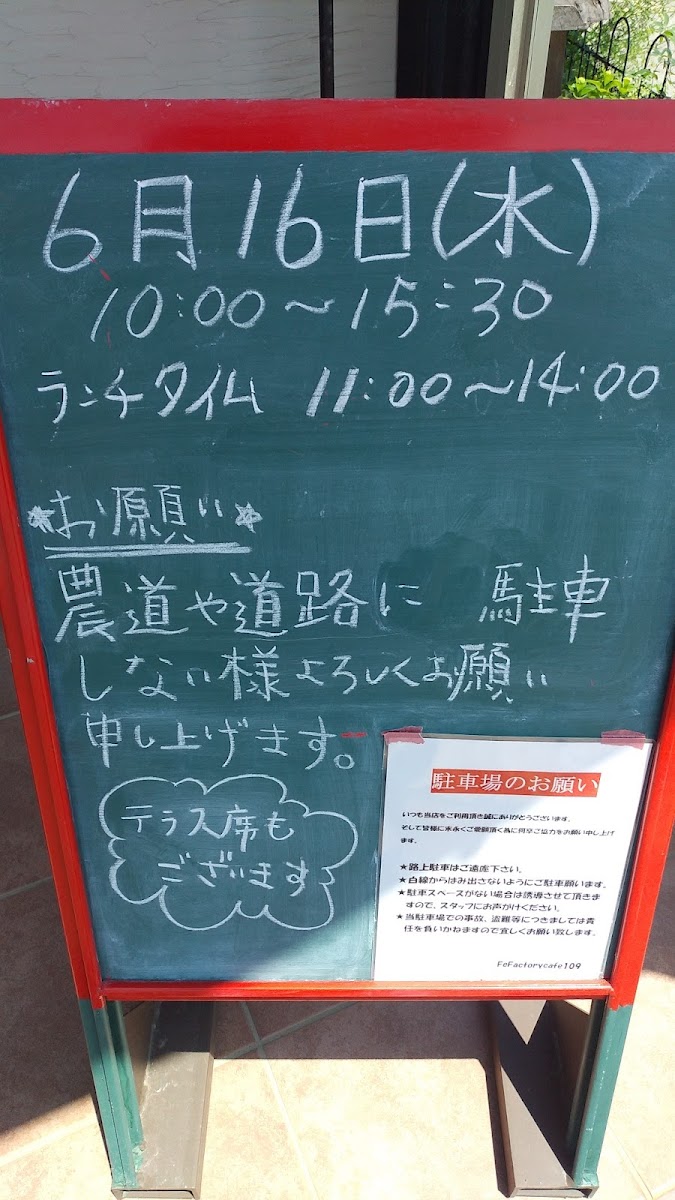 6月16日(水)
10:00〜15:30
ランチタイム 11:00〜14:00
★お願い★
農道や道路に 駐車
しない様よろしくお願い
申し上げます。
テラス席も
ございます
駐車場のお願い
いつも当店をご利用頂き誠にありがとうございます。
そして皆様に末永くご愛顧頂く為に何卒ご協力をお願い申し上げ
ます。
★路上駐車はご遠慮下さい。
★白線からはみ出さないようにご駐車願います。
★駐車スペースがない場合は誘導させて頂きま
すので、スタッフにお声がけください。
★当駐車場での事故、盗難等につきましては責
任を負いかねますので宜しくお願い致します。
FeFactorycafe109